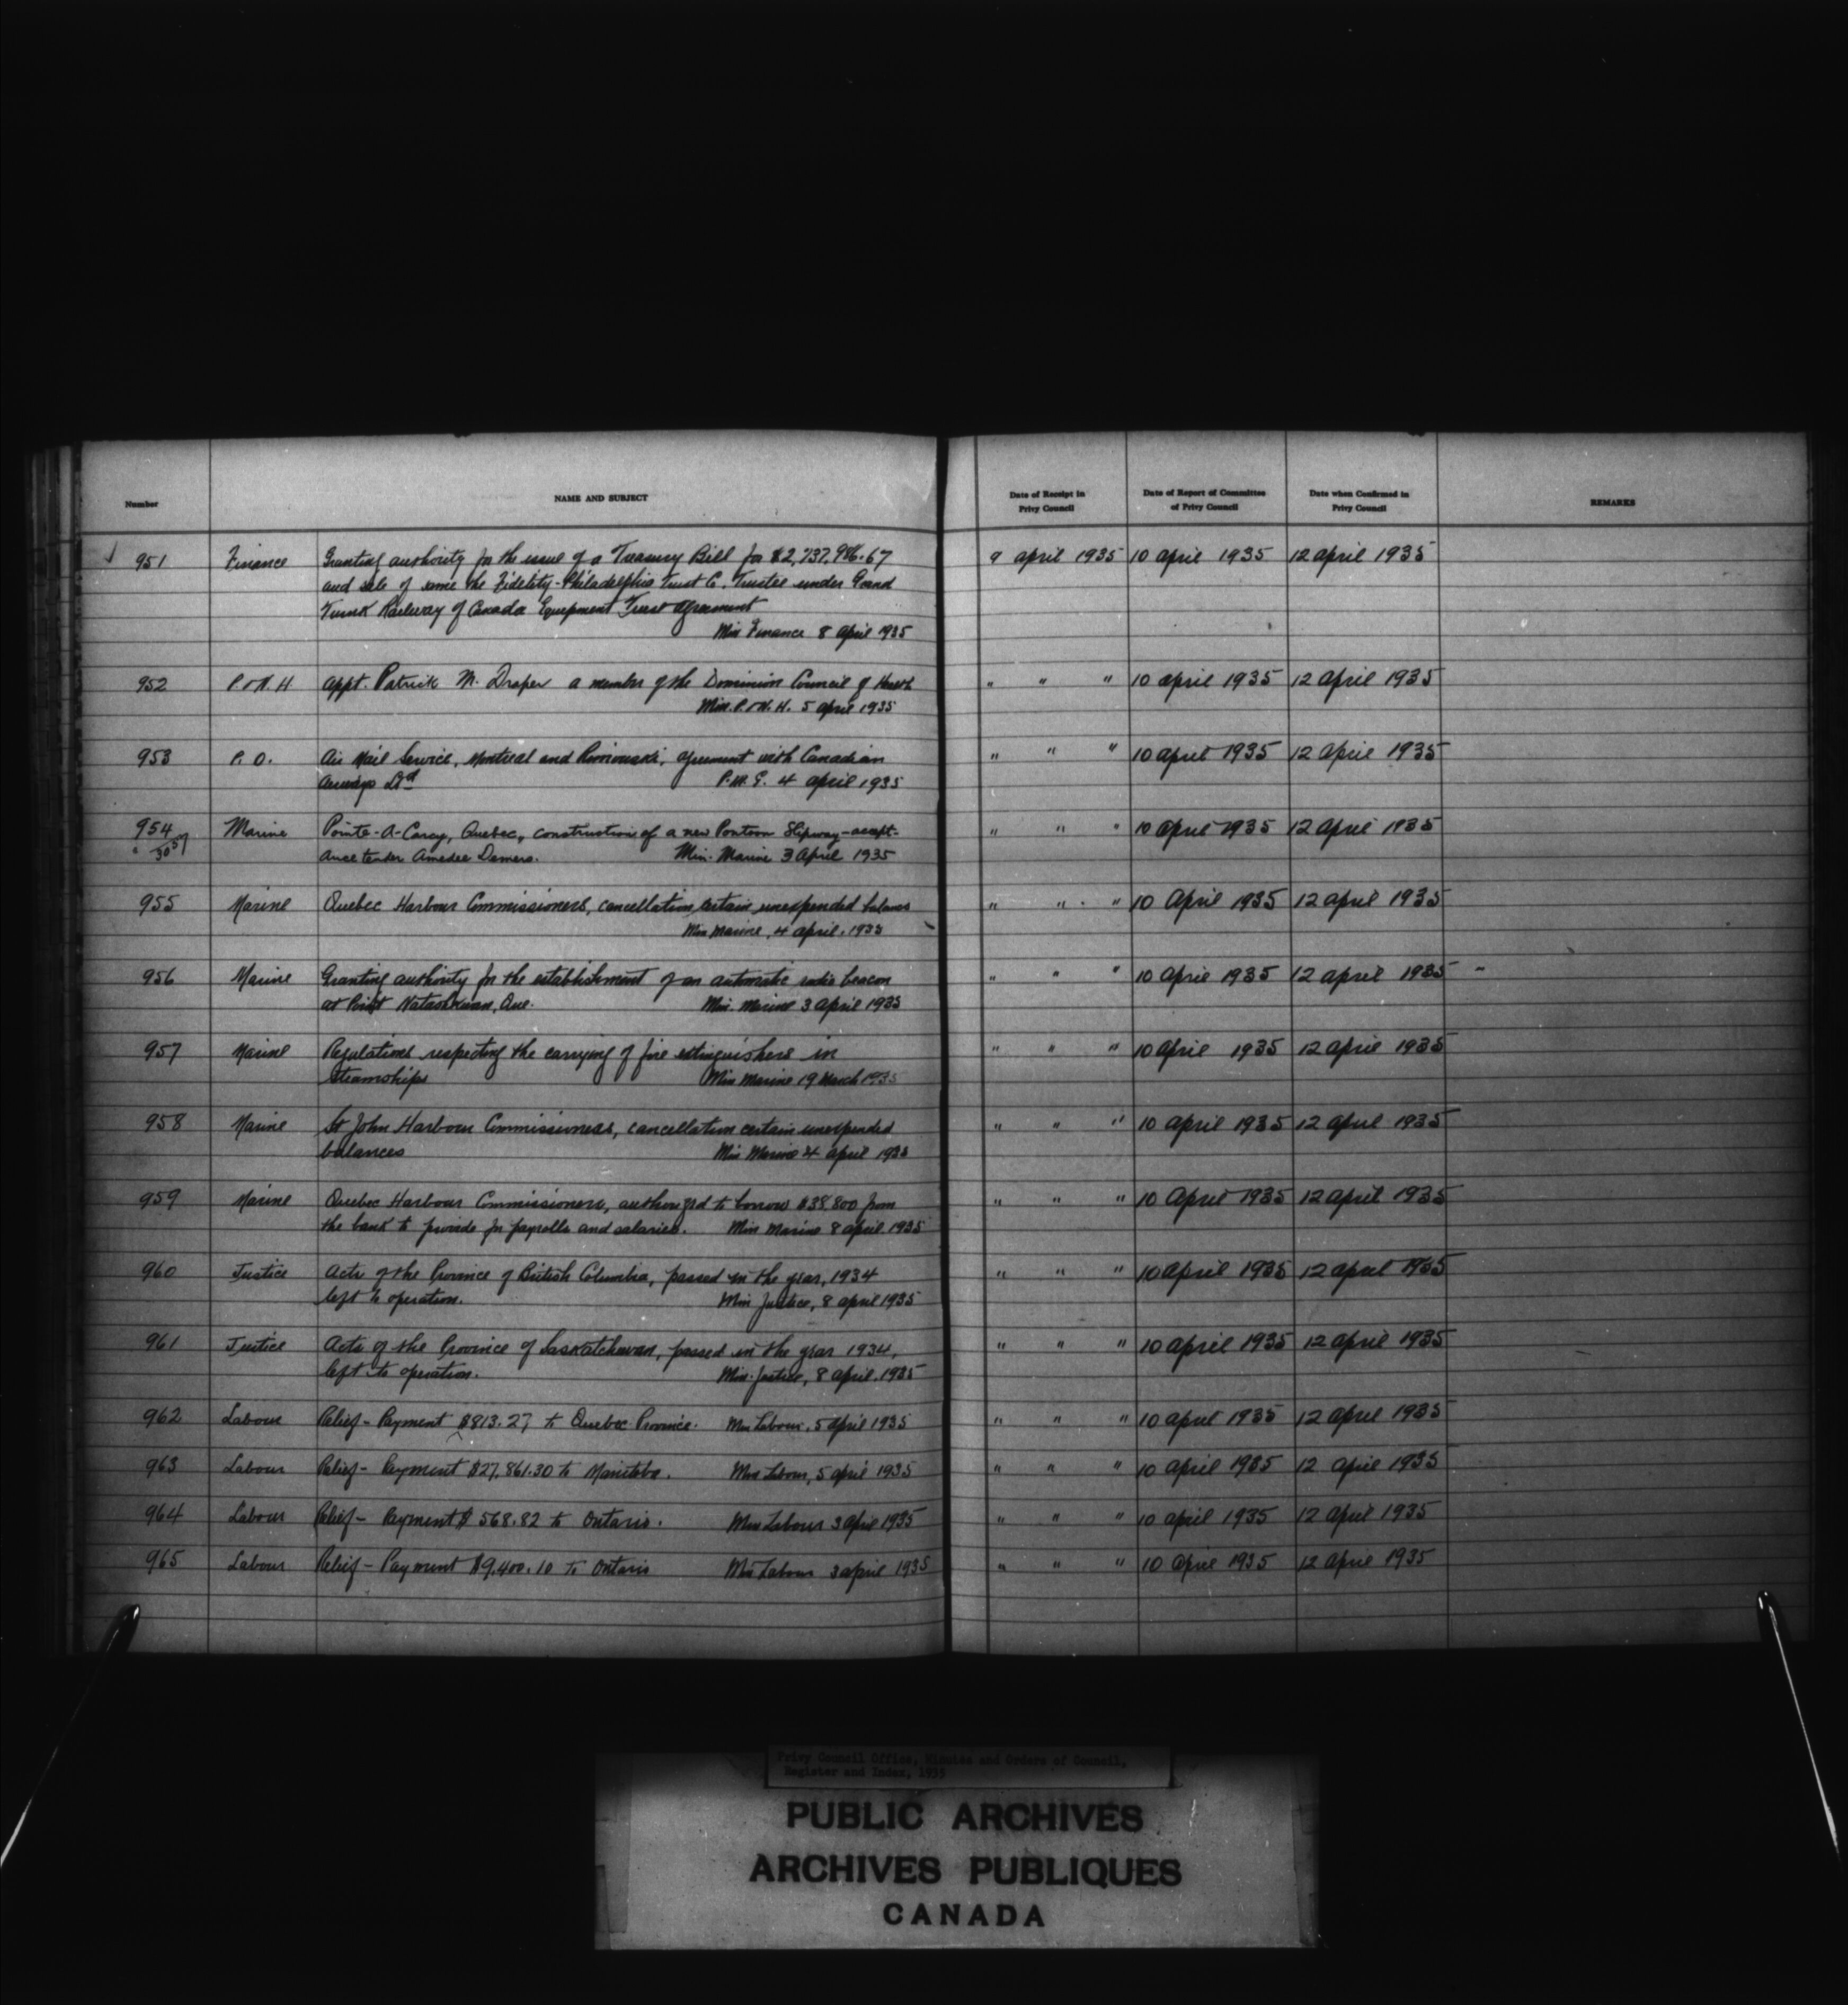 Number
NAME AND SUBJECT
Date of Receipt in Privy Council
Date of Report of Committee of Privy Council
Date when Confirmed in Privy Council
REMARKS
951 Finance Granting authority for the issue of a Treasury Bill for $2,737,986.67 9 April 1935 10 April 1935 12 April 1935
and sale of same the Fidelity-Philadelphia Trust Co. Trustee under Grand
Trunk Railway of Canada Equipment Trust Agreement
Min Finance 8 April 1935
952 P. & N. H Appt. Patrick M. Draper a member of the Dominion Council of Health " " " 10 April 1935 12 April 1935
Min. P. & N. H. 5 April 1935
953 P. O. Air Mail Service, Montreal and Rimouski, agreement with Canadian " " " 10 April 1935 12 April 1935
Airways Ltd P.M.G. 4 April 1935
954 Marine Pointe-A-Carcy, Quebec, construction of a new Pontoon Slipway-accept- " " " 10 April 1935 12 April 1935
ance tender Amedee Demers. Min. Marine 3 April 1935
955 Marine Quebec Harbour Commissioners, cancellation certain unexpended balances " " " 10 April 1935 12 April 1935
Min Marine, 4 April. 1935
956 Marine Granting authority for the establishment of an automatic radio beacon " " " 10 April 1935 12 April 1935
at Point Natashkwan, Que. Min. Marine 3 April 1935
957 Marine Regulations respecting the carrying of fire extinguishers in " " " 10 April 1935 12 April 1935
steamships Min Marine 19 March 1935
958 Marine St John Harbour Commissioners, cancellation certain unexpended " " " 10 April 1935 12 April 1935
balances Min Marine 4 April 1935
959 Marine Quebec Harbour Commissioners, authorized to borrow $38,800 from " " " 10 April 1935 12 April 1935
the bank to provide for payrolls and salaries. Min Marine 8 April. 1935
960 Justice Acts of the Province of British Columbia, passed in the year, 1934 " " " 10 April 1935 12 April 1935
left to operation. Min Justice, 8 April 1935
961 Justice Acts of the Province of Saskatchewan, passed in the year 1934, " " " 10 April 1935 12 April 1935
left to operation. Min. Justice, 8 April. 1935
962 Labour Relief- Payment $813.27 to Quebec Province. Min Labour, 5 April 1935 " " " 10 April 1935 12 April 1935
963 Labour Relief- Payment $27,861.30 to Manitoba. Min Labour, 5 April 1935 " " " 10 April 1935 12 April 1935
964 Labour Relief- Payment $568.82 to Ontario. Min Labour 3 April 1935 " " " 10 April 1935 12 April 1935
965 Labour Relief- Payment $9,400.10 to Ontario Min Labour 3 April 1935 " " " 10 April 1935 12 April 1935
Privy Council Office, Minutes and Orders of Council,
Register and Index, 1935
PUBLIC ARCHIVES
ARCHIVES PUBLIQUES
CANADA